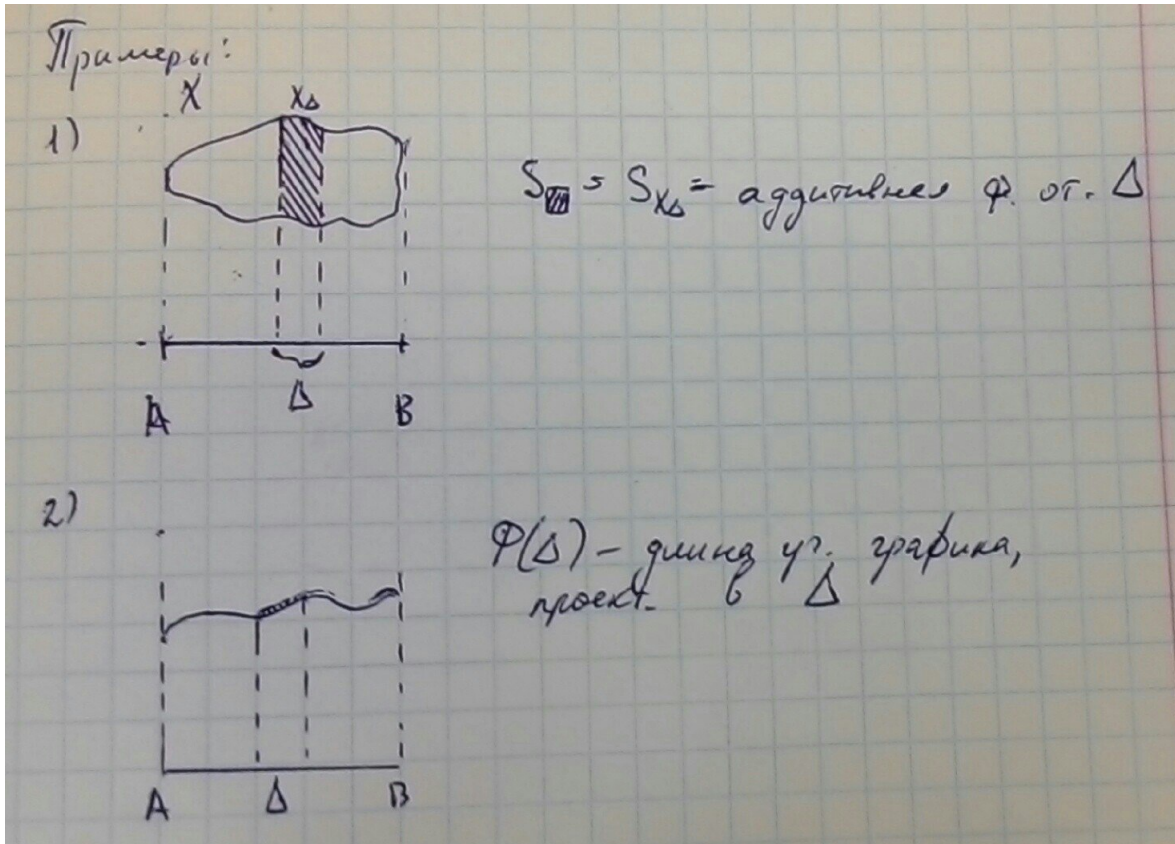 Примеры:
X
X_Δ
1)
S▨ = S_{X_Δ} = аддитивная ф. от. Δ
Δ
A B
2)
Φ(Δ) – длина уч. графика,
проект. в Δ
A Δ B